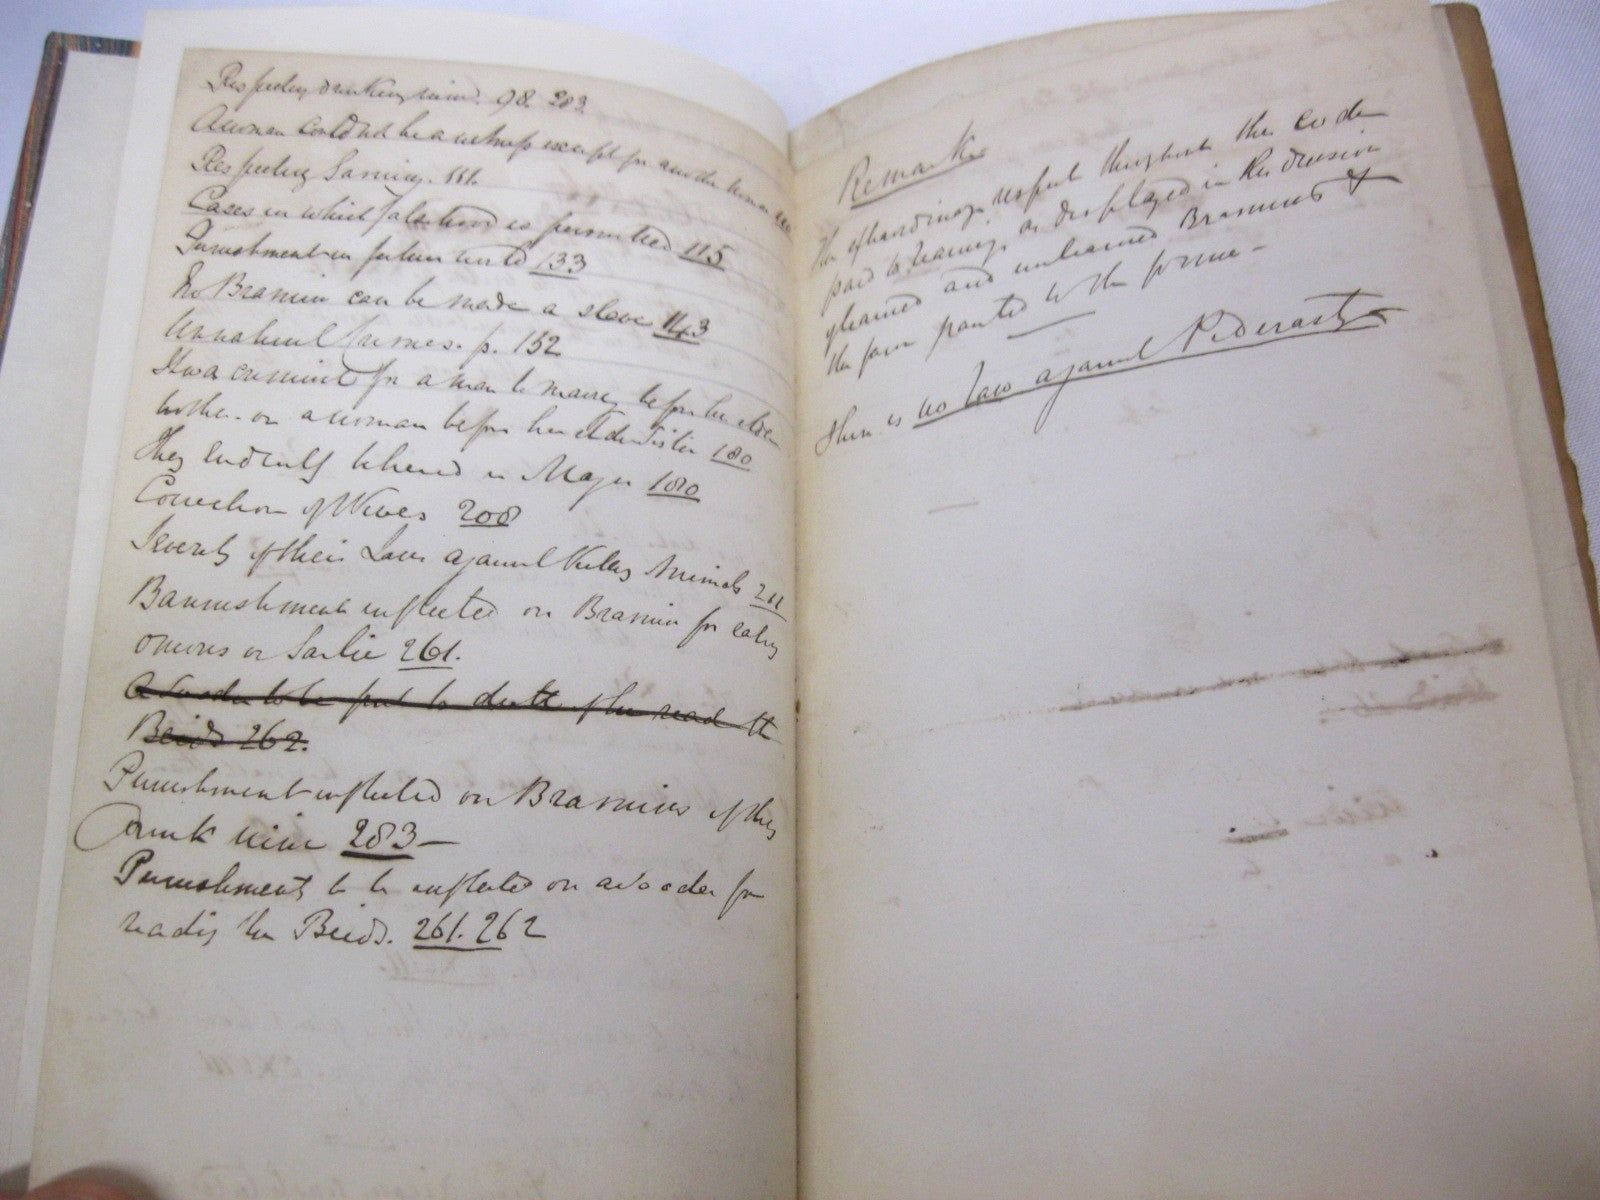 Respecting drinking wine. 98. 283.
A woman could not be a witness except for another woman
Respecting Gaming. 111.
Cases in which falsehood is permitted 115
Punishment in future world 133
No Bramin can be made a slave 143
Unnatural Crimes. p. 152
It was criminal for a man to marry before his elder
brother. or a woman before her elder Sister 180
They evidently believed in Magic 180
Correction of Wives 208
Severity of their Laws against killing Animals 211
Bannishment inflected on Bramin for eating
onions or Garlic 261.
A Sooder to be put to death if he read the
Beids 262.
Punishment inflected on Bramins if they
drink wine 283—
Punishment to be inflected on a Sooder for
reading the Beids. 261. 262
Remarks
The extraordinary respect throughout this code
paid to learning, as displayed in the division
of learned and unlearned Bramins &
the favor granted to the former—
There is no law against Pederasty